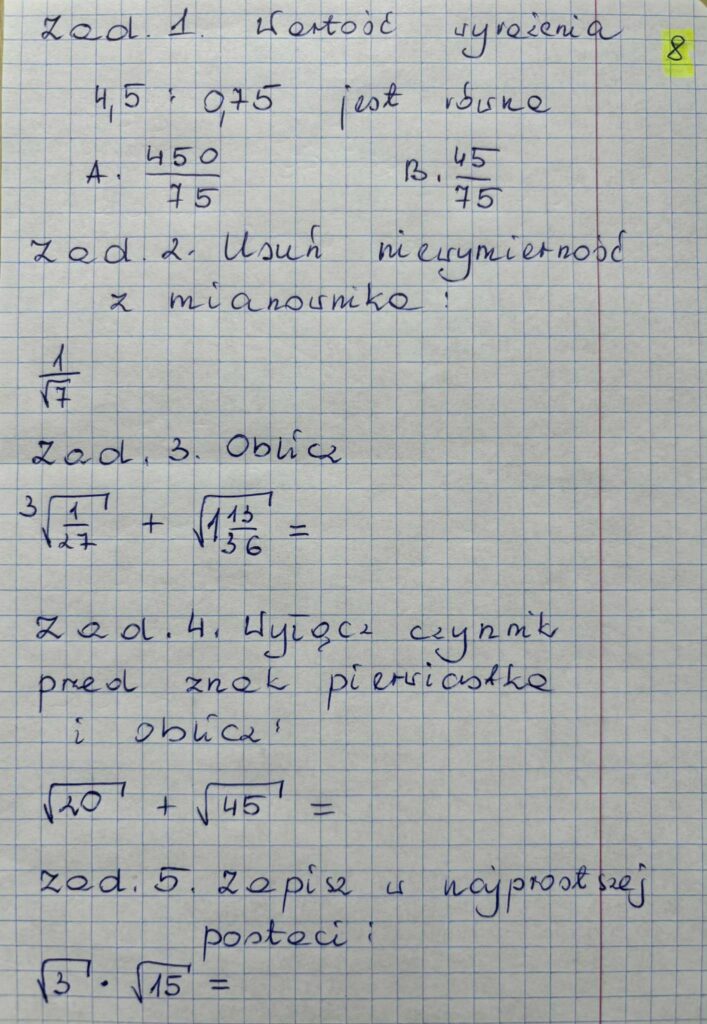 Zad. 1. Wartość wyrażenia
8
4,5 : 0,75 jest równa
A. 450/75 B. 45/75
Zad. 2. Usuń niewymierność
z mianownika:
1/√7
Zad. 3. Oblicz
³√(1/27) + √(1 13/36) =
Zad. 4. Wyłącz czynnik
przed znak pierwiastka
i oblicz:
√20 + √45 =
Zad. 5. Zapisz w najprostszej
postaci:
√3 · √15 =